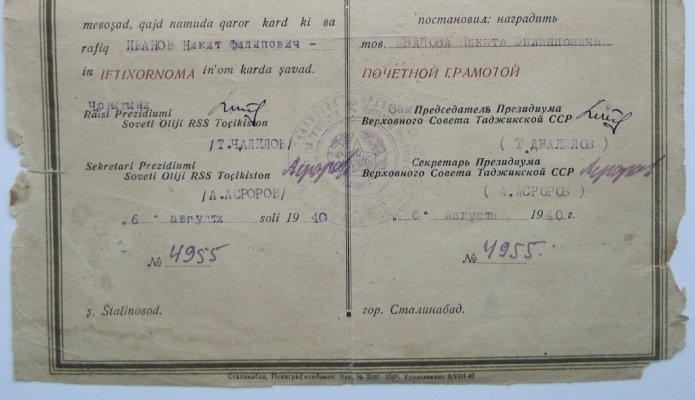 meʙoşad, qajd namuda qaror kard ki ʙa
rafiq ИВАНОВ Никит Филипович -
in IFTIXORNOMA in'om karda şavad.
Çonişini
Raisi Prezidiumi
Soveti Oliji RSS Toçikiston
/Т.ЧАЛИЛОВ/
Sekretari Prezidiumi
Soveti Oliji RSS Toçikiston
/А.АСРОРОВ/
„6“ августи soli 1940
№ 4955
ş. Stalinoʙod.
постановил: наградить
тов. ИВАНОВА Никита Филипповича
ПОЧЕТНОЙ ГРАМОТОЙ
Зам Председатель Президиума
Верховного Совета Таджикской ССР
( Т.ДЖАЛИЛОВ )
Секретарь Президиума
Верховного Совета Таджикской ССР
( А.АСРОРОВ )
„6“ августа 1940 г.
№ 4955.
гор. Сталинабад.
Сталинабад, Полиграфкомбинат. Зак. № 2240—1500.